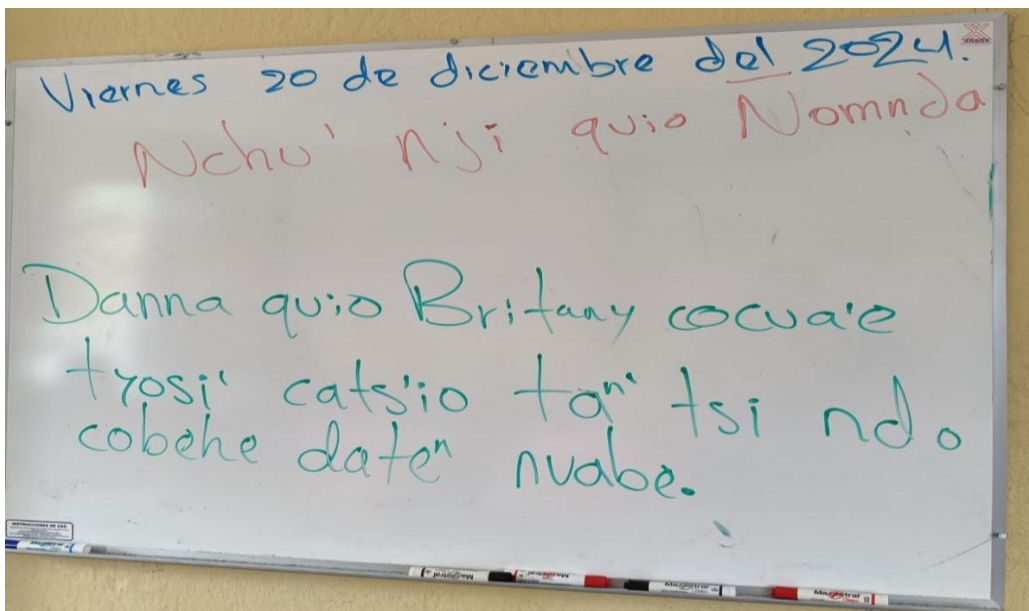 Viernes 20 de diciembre del 2024.
Nchu' nji quio Nomnda
Danna quio Britany cocua'e
tyosi' cats'io taⁿ' tsi ndo
cobehe dateⁿ nuabe.
INSTRUCCIONES DE USO
Magistral
Magistral
Magistral
Magistral